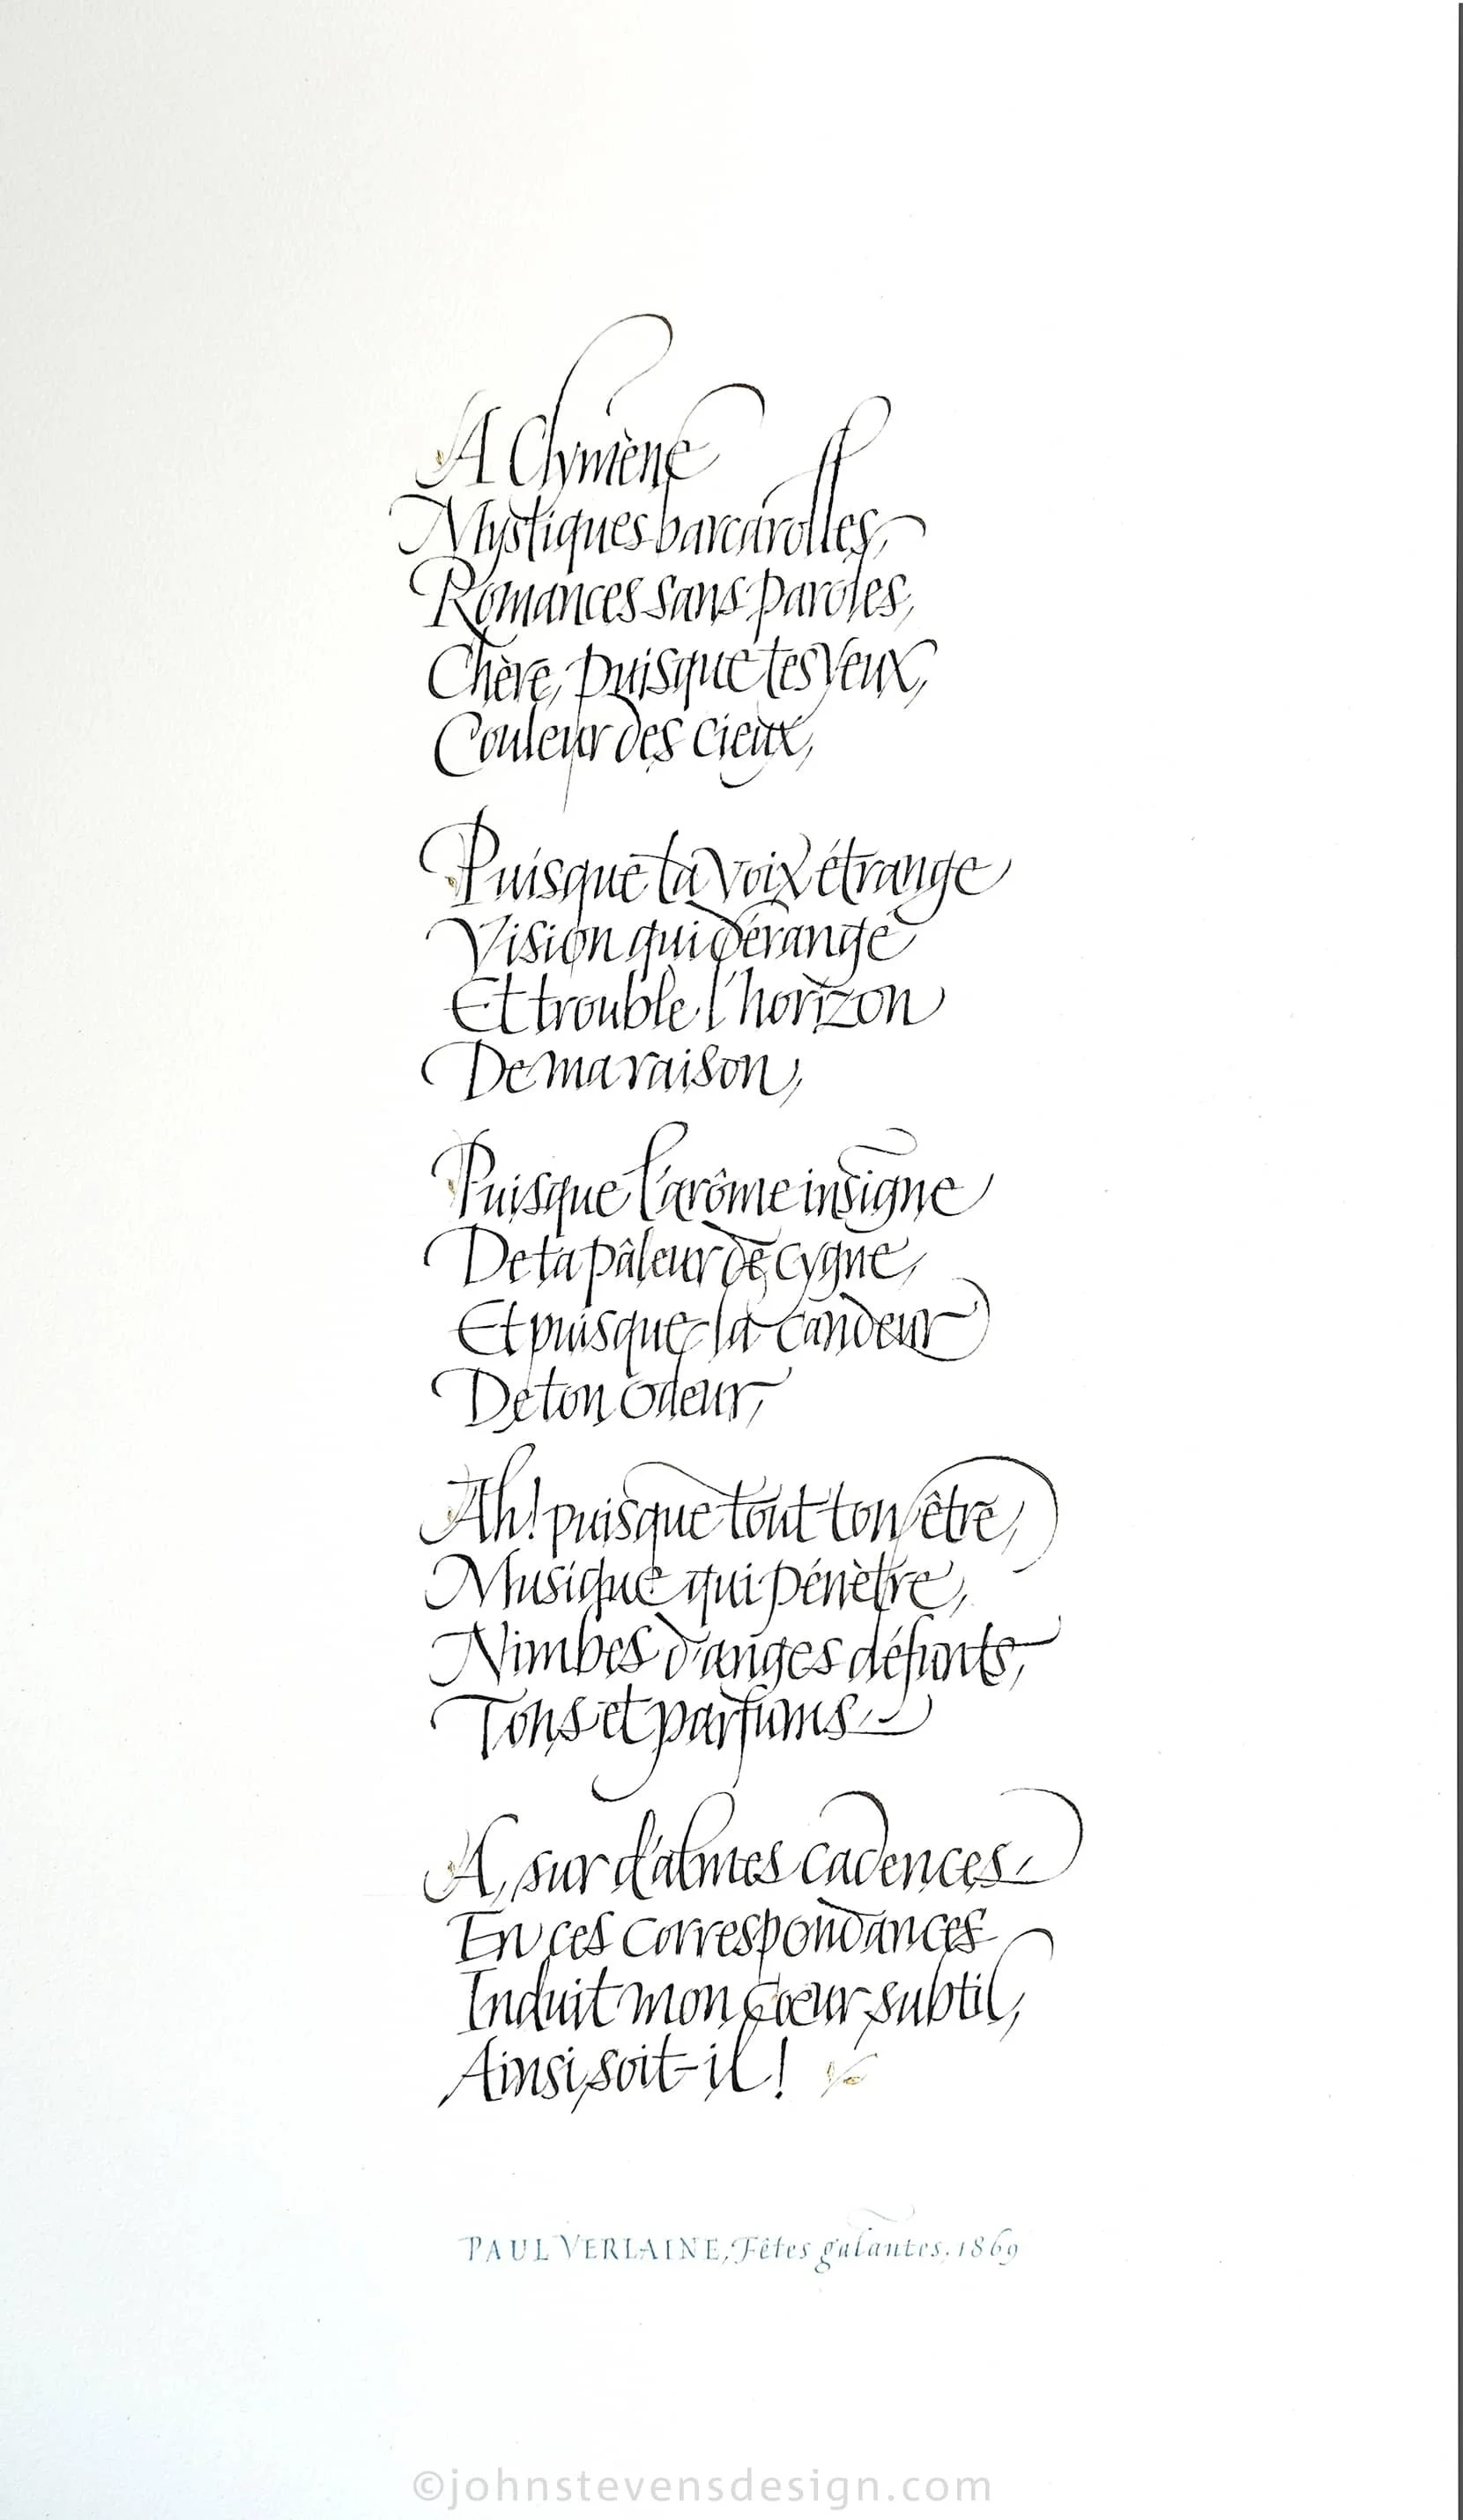 A Clymène
Mystiques barcarolles,
Romances sans paroles,
Chère, puisque tes yeux,
Couleur des cieux,
Puisque ta voix étrange
Vision qui dérange
Et trouble l'horizon
De ma raison,
Puisque l'arôme insigne
De ta pâleur de cygne,
Et puisque la candeur
De ton odeur,
Ah! puisque tout ton être,
Musique qui pénètre,
Nimbes d'anges défunts,
Tons et parfums,
A, sur d'almes cadences,
En ces correspondances
Induit mon cœur subtil,
Ainsi soit-il!
PAUL VERLAINE, Fêtes galantes, 1869
©johnstevensdesign.com